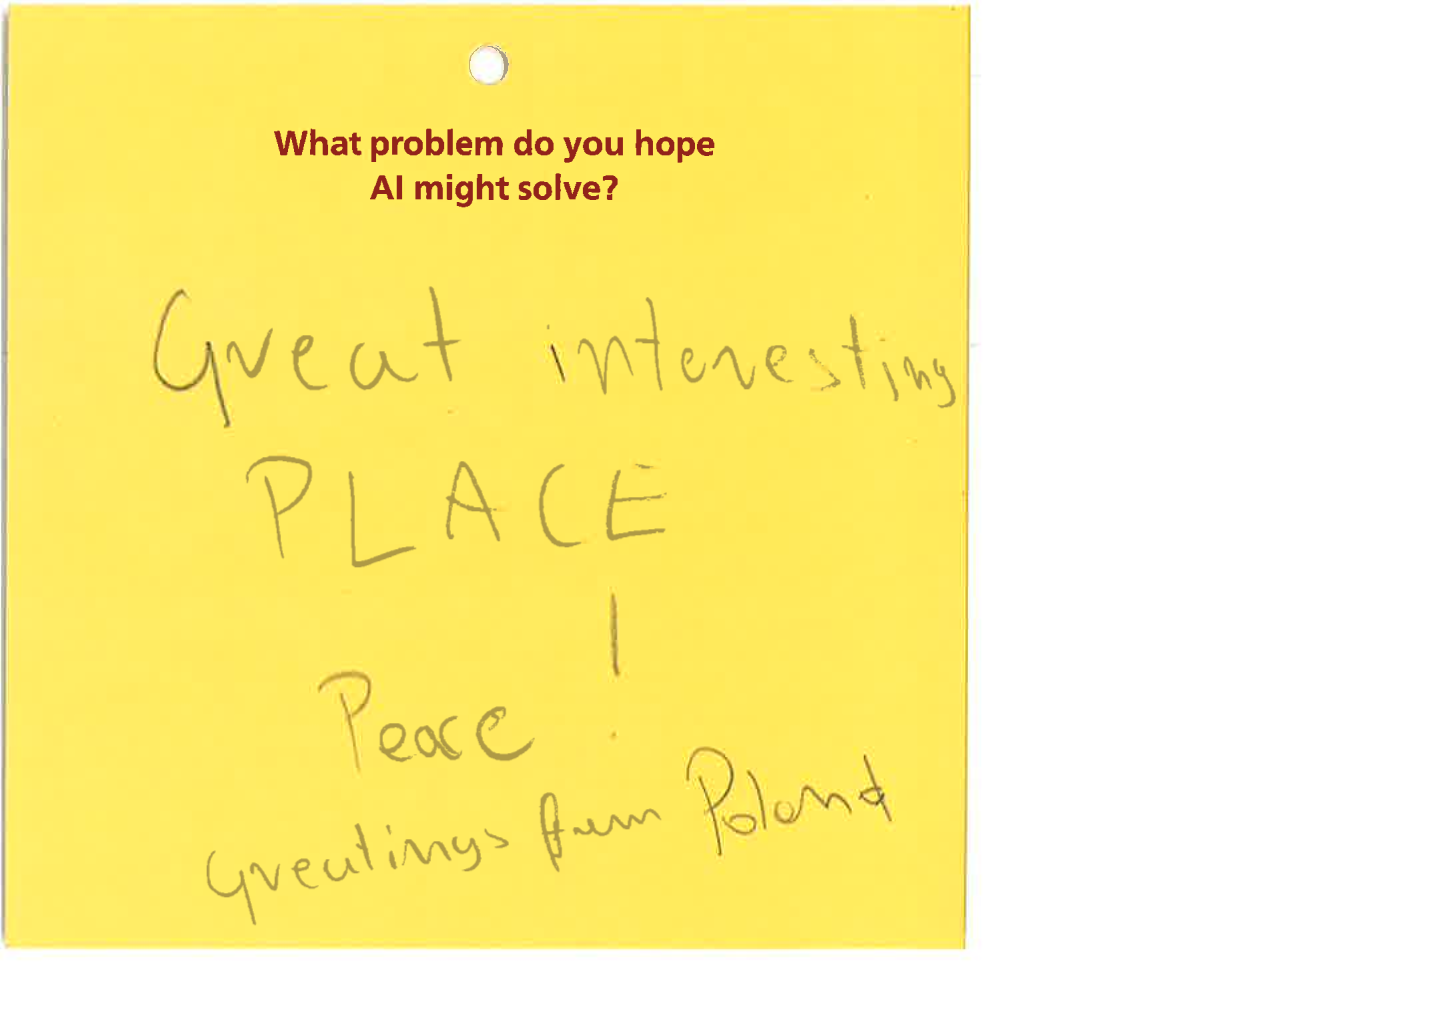 What problem do you hope
AI might solve?
Great interesting
PLACE
!
Peace
Greatings from Poland